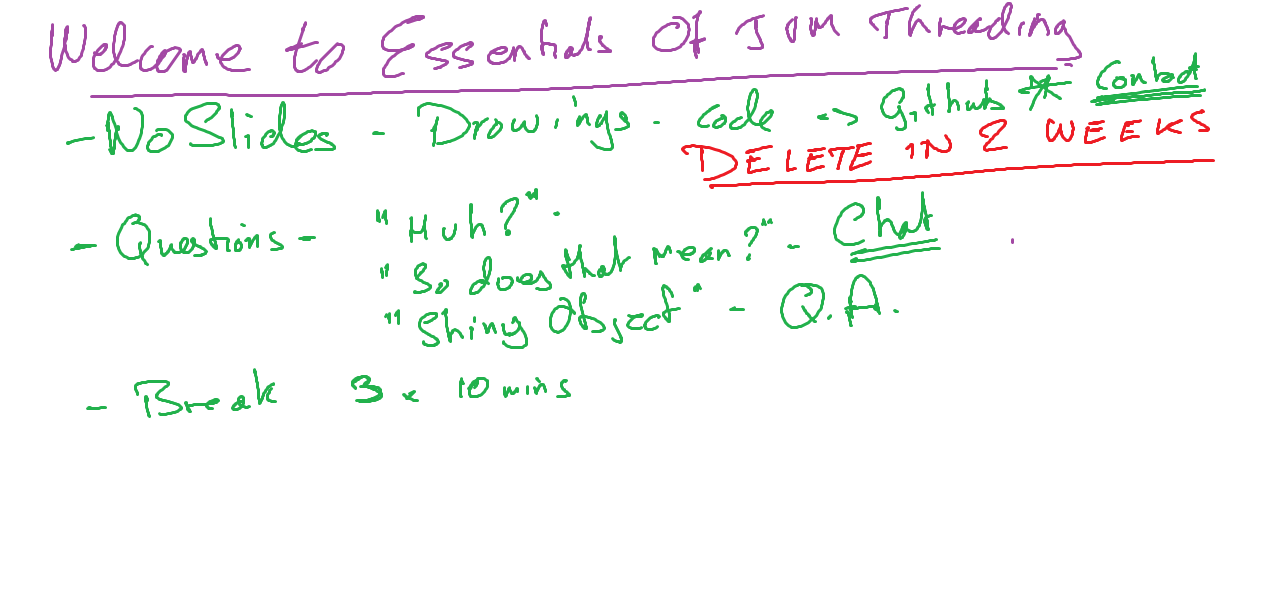 Welcome to Essentials Of JVM Threading
- No Slides - Drawings - code -> Github * Contact
DELETE IN 2 WEEKS
- Questions - "Huh?" - 
"So does that mean?" - Chat
"Shiny Object" - Q.A.
- Break 3 x 10 mins